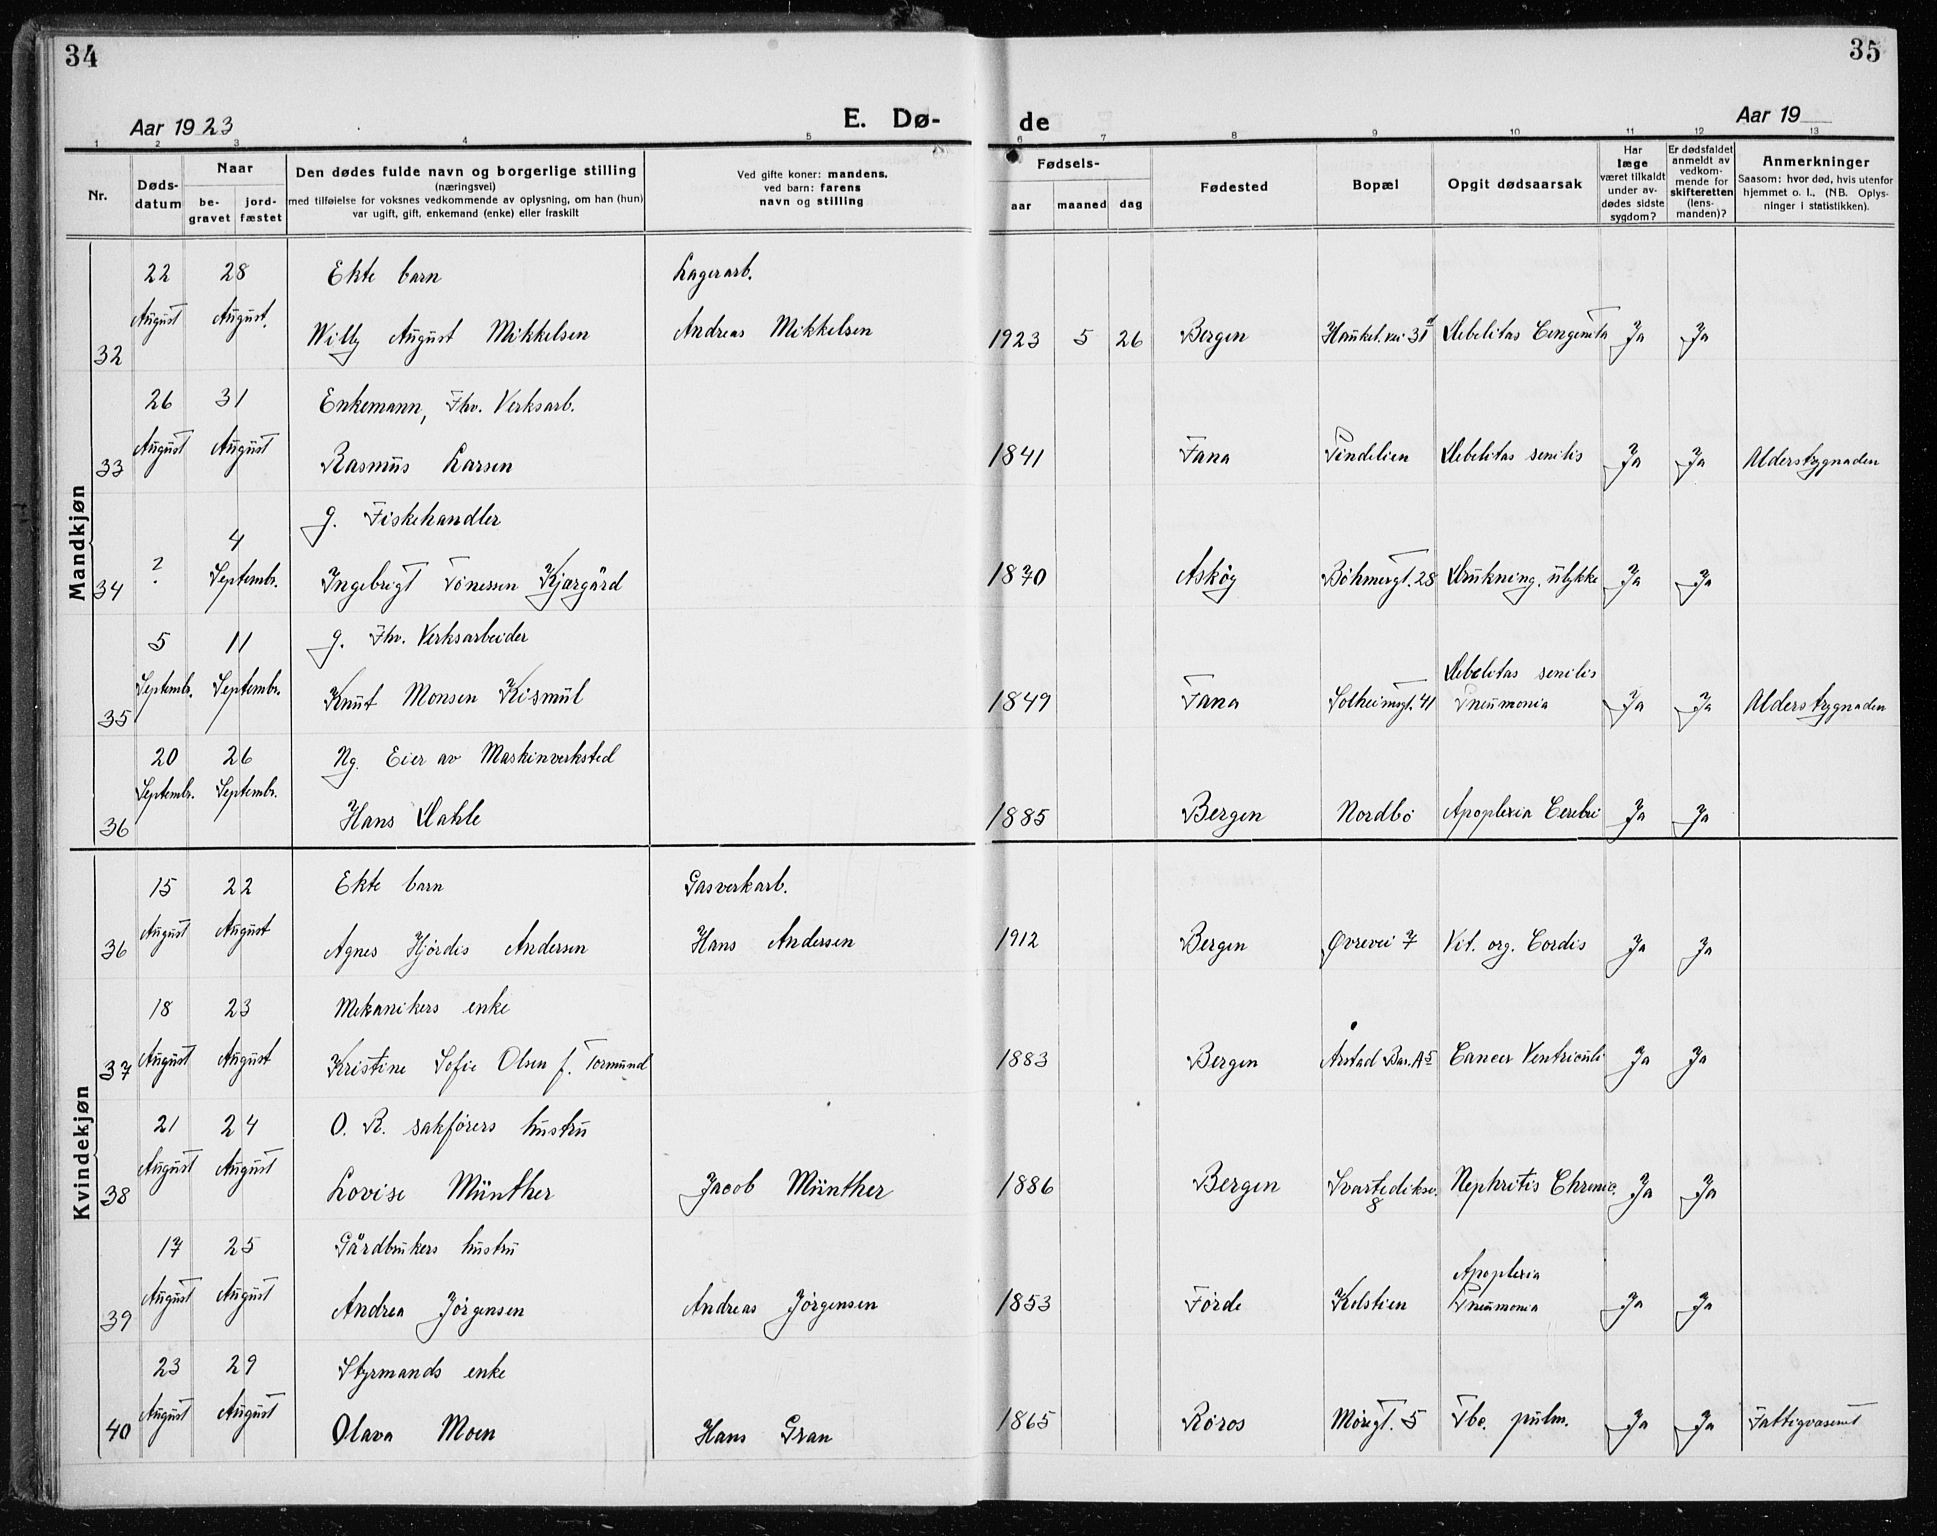 34
35
Aar 1923
E. Dø-
de
Aar 19
1 2 3 4 5 6 7 8 9 10 11 12 13
Nr.
Døds-
datum
Naar
be-
gravet
jord-
fæstet
Den dødes fulde navn og borgerlige stilling
(næringsvei)
med tilføielse for voksnes vedkommende av oplysning, om han (hun)
var ugift, gift, enkemand (enke) eller fraskilt
Ved gifte koner: mandens.
ved barn: farens
navn og stilling
Fødsels-
aar
maaned
dag
Fødested
Bopæl
Opgit dødsaarsak
Har
læge
været tilkaldt
under av-
dødes sidste
sygdom?
Er dødsfaldet
anmeldt av
vedkom-
mende for
skifteretten
(lens-
manden)?
Anmerkninger
Saasom: hvor død, hvis utenfor
hjemmet o. l., (NB. Oplys-
ninger i statistikken).
Mandkjøn
22 28 Ekte barn Lagerarb.
August August. Willy August Mikkelsen Andreas Mikkelsen
32 1923 5 26 Bergen Haukel. vei 31 Debelitas Congenita Ja Ja
26 31 Enkemann, Fhv. Verksarb.
August August
33 Rasmus Larsen 1841 Fana Vindelien Debelitas senilis Ja Ja Alderstrygnaden
g. Fiskehandler
4
34 ? Septembr. Ingebrigt Tønessen Kjærgård 1870 Askøy Böhmergt. 28 Drukning. ulykke Ja Ja
5 11 g. Fhv. Verksarbeider
Septembr. Septembr. Debelitas senilis
35 Knut Monsen Kismul 1849 Fana Solheimsgt. 41 Pneumonia Ja Ja Alderstrygnaden
20 26 Ng. Eier av Maskinverksted
Septembr. Septembr.
36 Hans Dahle 1885 Bergen Nordbø Apoplexia Cerebri Ja Ja
Kvindekjøn
15 22 Ekte barn Gasverkarb.
August August
36 Agnes Hjördis Andersen Hans Andersen 1912 Bergen Øvrevei 7 Vit. org. Cordis Ja Ja
18 23 Mekanikers enke
37 August August Kristine Sofie Olsen f. Tormund 1883 Bergen Årstad Bar. A5 Cancer Ventriculi Ja Ja
21 24 O. R. sakförers hustru
August August
38 Lovise Münther Jacob Münther 1886 Bergen Svartediksv. 8 Nephritis Chronic. Ja Ja
17 25 Gårdbrukers hustru
August August Apoplexia
39 Andrea Jörgensen Andreas Jörgensen 1853 Förde Kolstien Pneumonia Ja Ja
23 29 Styrmands enke
August August
40 Olava Moen Hans Gran 1865 Røros Möregt. 5 Tbc. pulm. Ja Ja Fattigvæsenet